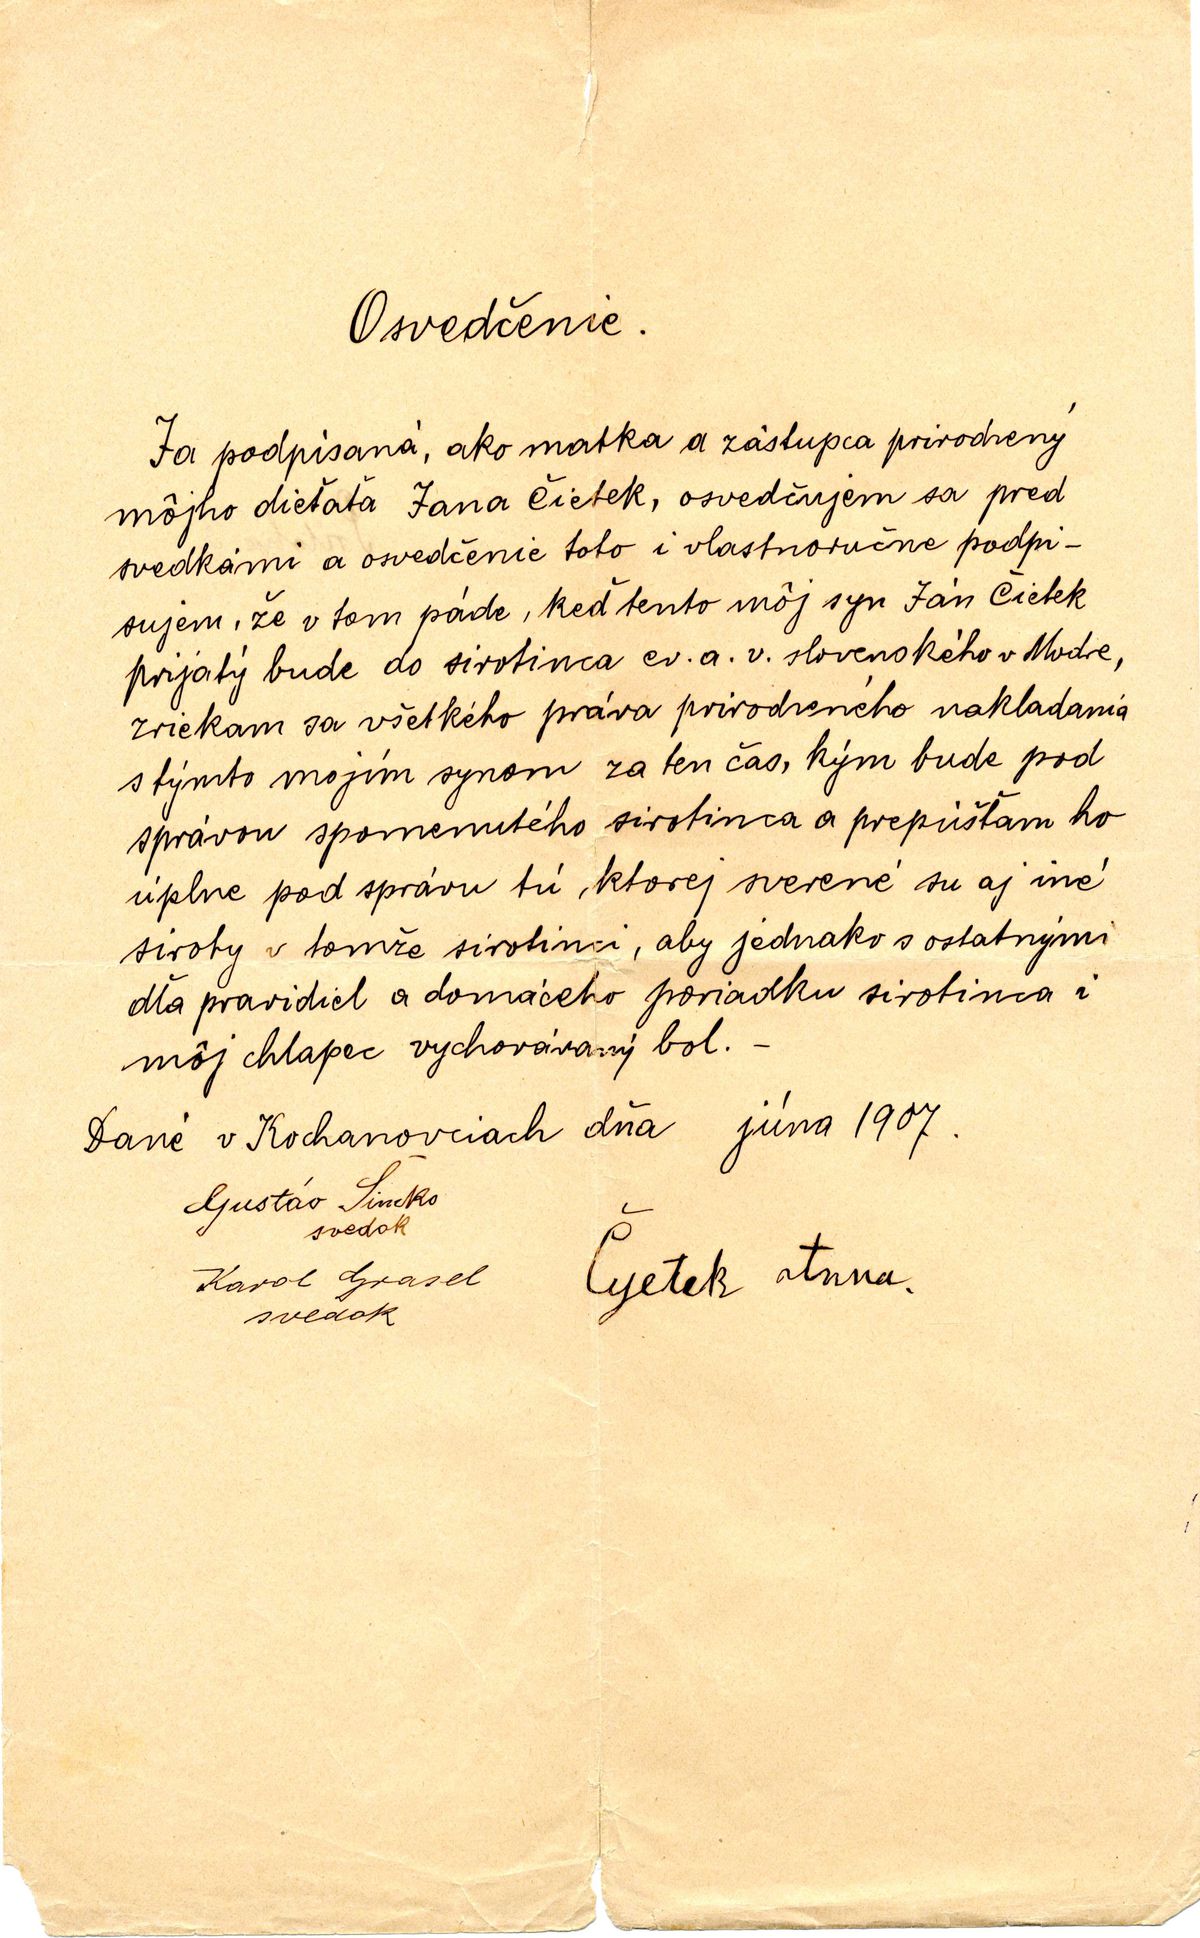 Osvedčenie.
Ja podpísaná, ako matka a zástupca prirodzený
môjho dieťaťa Jana Čietek, osvedčujem sa pred
svedkámi a osvedčenie toto i vlastnoručne podpi-
sujem, že v tom páde, keď tento môj syn Ján Čietek
prijatý bude do sirotinca ev. a. v. slovenského v Modre,
zriekam sa všetkého práva prirodzeného nakladania
s týmto mojím synom za ten čas, kým bude pod
správou spomenutého sirotinca a prepúšťam ho
úplne pod správu tú, ktorej sverené su aj iné
siroty v tomže sirotinci, aby jednako s ostatnými
dľa pravidiel a domáceho poriadku sirotinca i
môj chlapec vychovávaný bol. –
Dané v Kochanovciach dňa júna 1907.
Gustáv
svedok
Karol Grasel
svedok
Čyetek Anna.